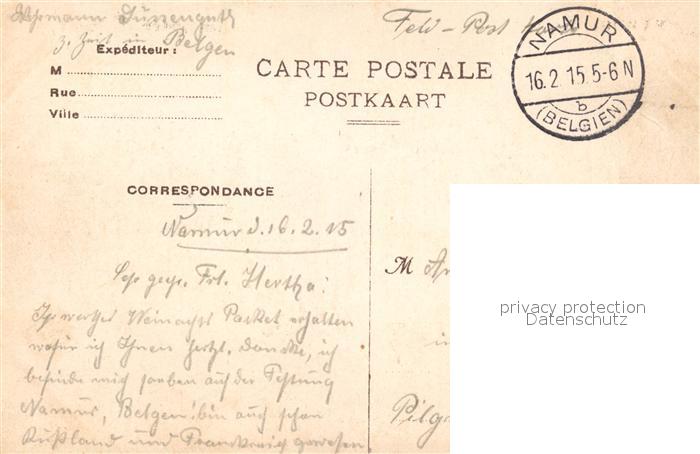 Wehrmann
z. Zeit in Belgen
Feld-Post
Expéditeur :
M
Rue
Ville
CARTE POSTALE
POSTKAART
NAMUR
16. 2. 15. 5-6 N
b
(BELGIEN)
CORRESPONDANCE
Namur d. 16. 2. 15
Sehr geehr. Frl. Hertha!
Ihr wertes Weinachts Packet erhalten
wofür ich Ihnen hertzl. Dancke, ich
befinde mich soeben auf der Festung
Namur, Belgen! bin auch schon
Rußland und Frankreich gewesen
M
in
privacy protection
Datenschutz